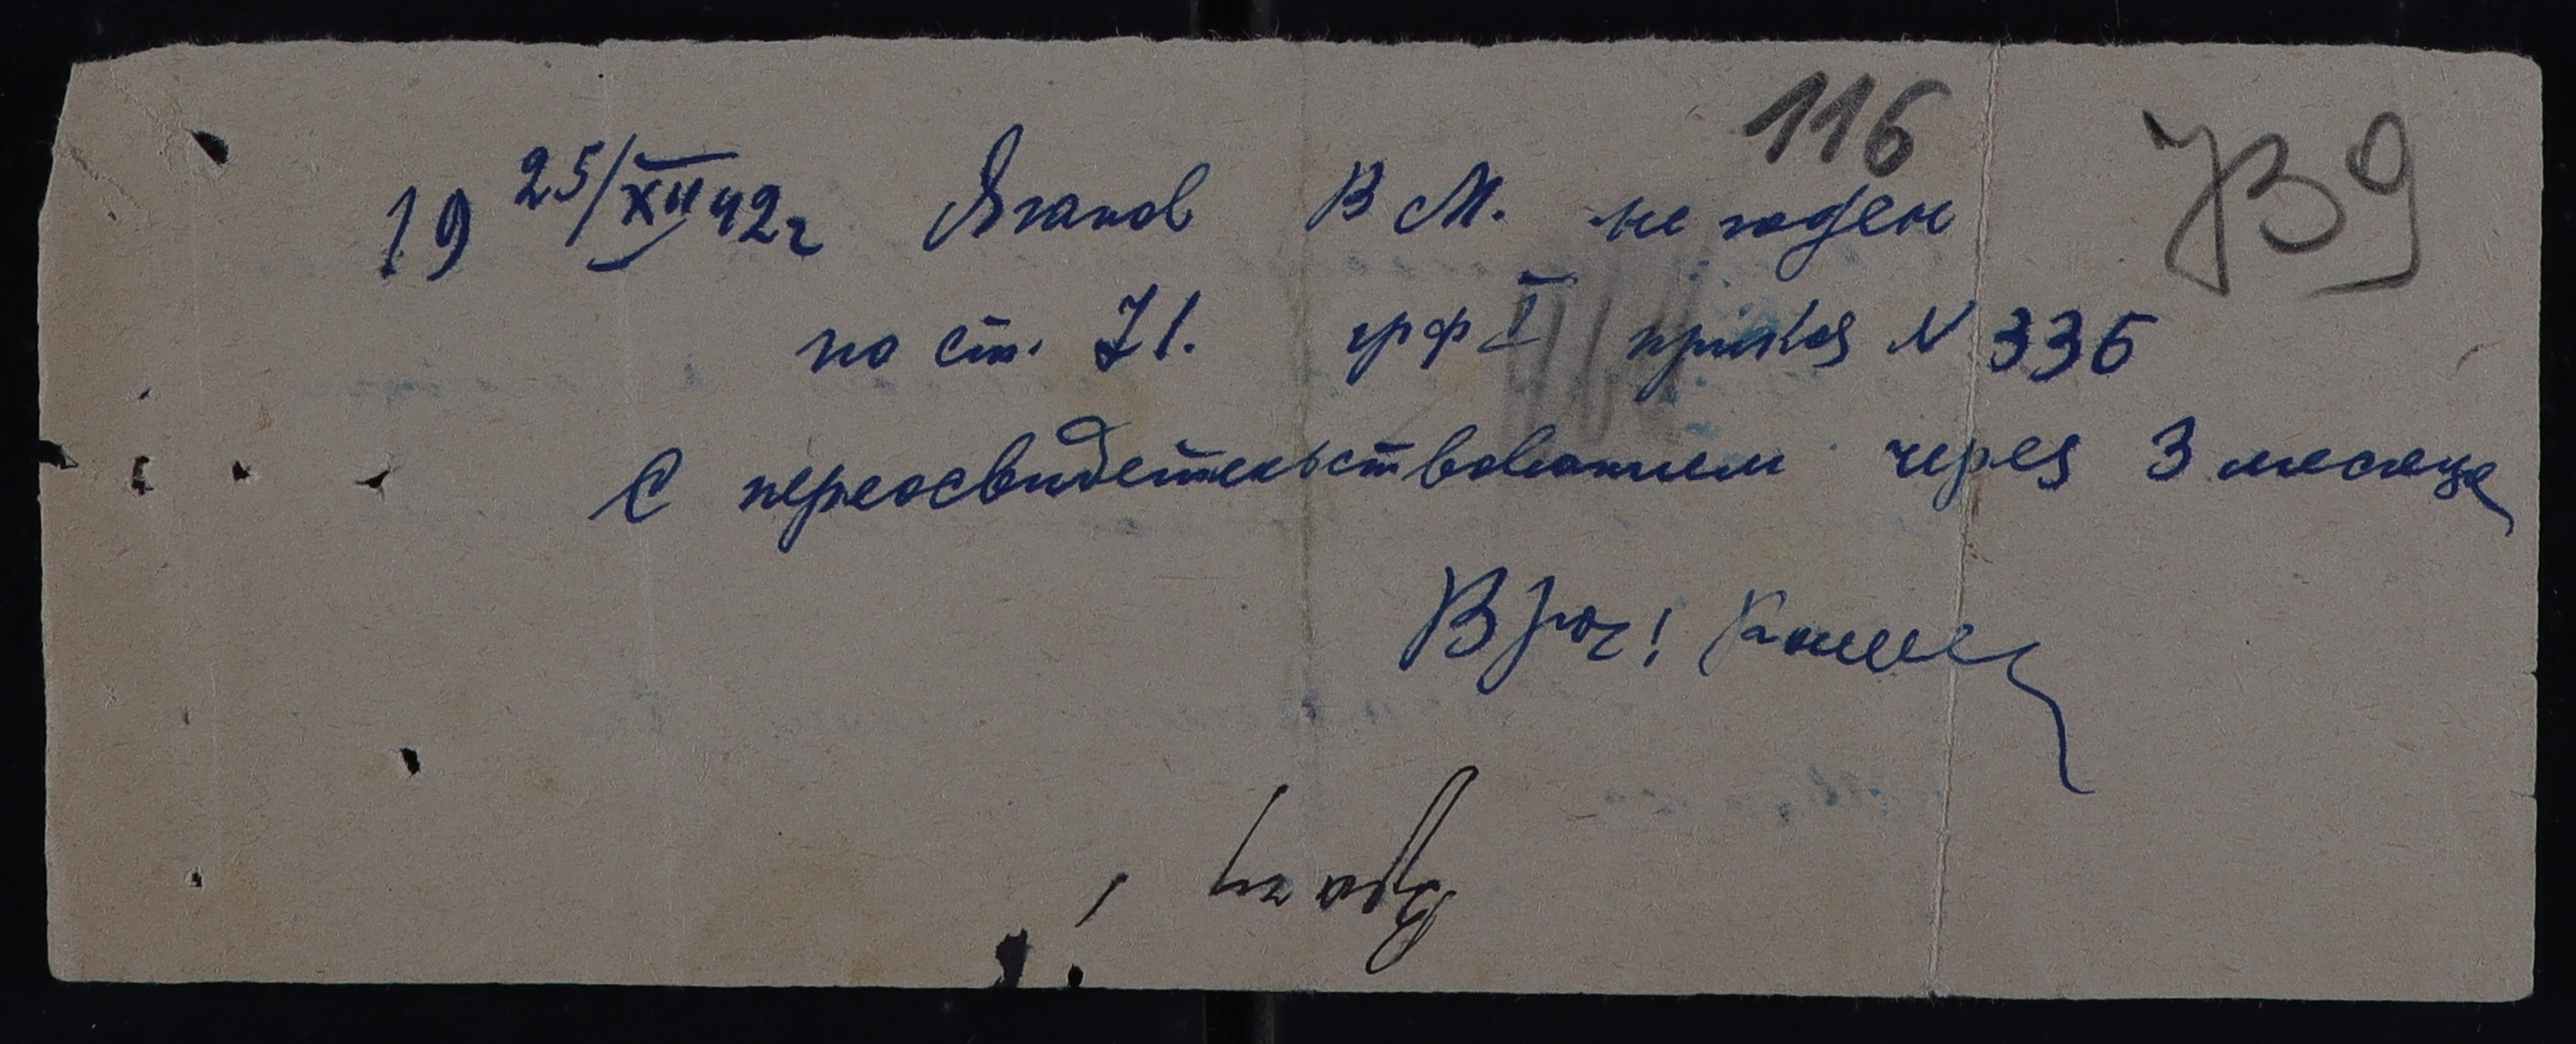 116
739
19 25/XII 42г Яганов В М. не годен
по ст. 71. грф I приказ N 336
С переосвидетельствованием через 3 месяца
Врач!